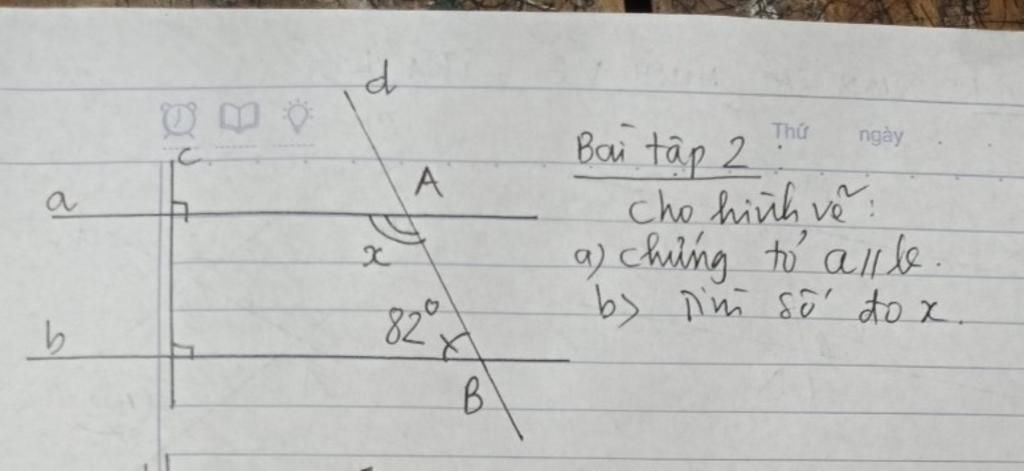 d
Thứ ngày
c
A
a
x
82°
b
B
Bài tập 2
Cho hình vẽ:
a) chứng tỏ a//b.
b) Tìm số đo x.